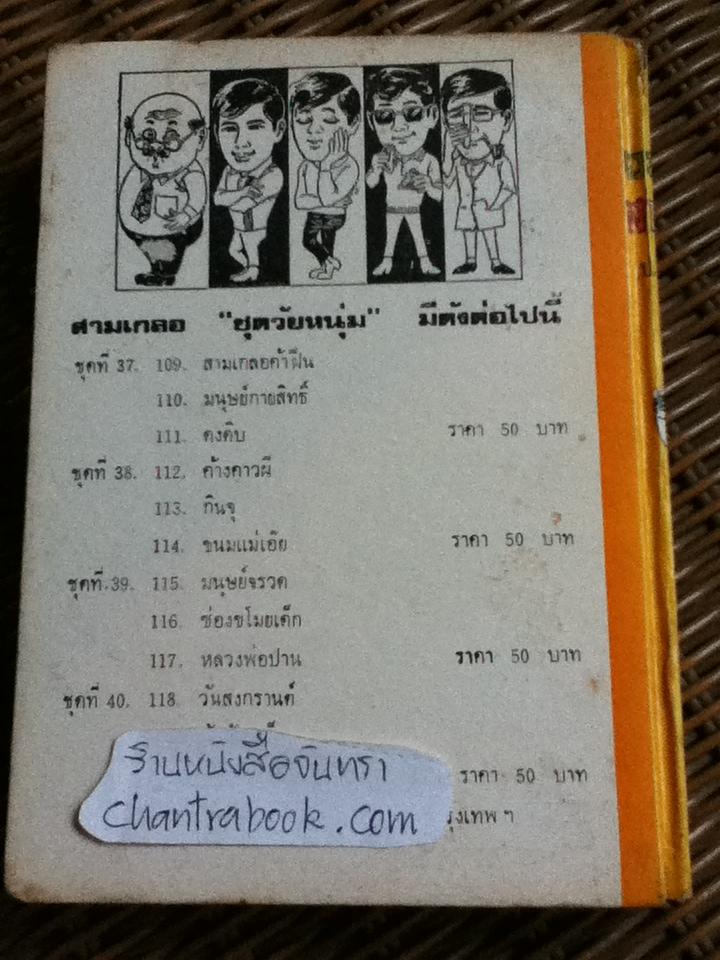 สามเกลอ "ชุดวัยหนุ่ม" มีดังต่อไปนี้
ชุดที่ 37. 109. สามเกลอค้าฝิ่น
110. มนุษย์กายสิทธิ์
111. ดงดิบ ราคา 50 บาท
ชุดที่ 38. 112. ค้างคาวผี
113. กินจุ
114. ขนมแม่เอ๊ย ราคา 50 บาท
ชุดที่ 39. 115. มนุษย์จรวด
116. ซ่องขโมยเด็ก
117. หลวงพ่อปาน ราคา 50 บาท
ชุดที่ 40. 118. วันสงกรานต์
ราคา 50 บาท
ร้านหนังสือจันทรา
chantrabook.com